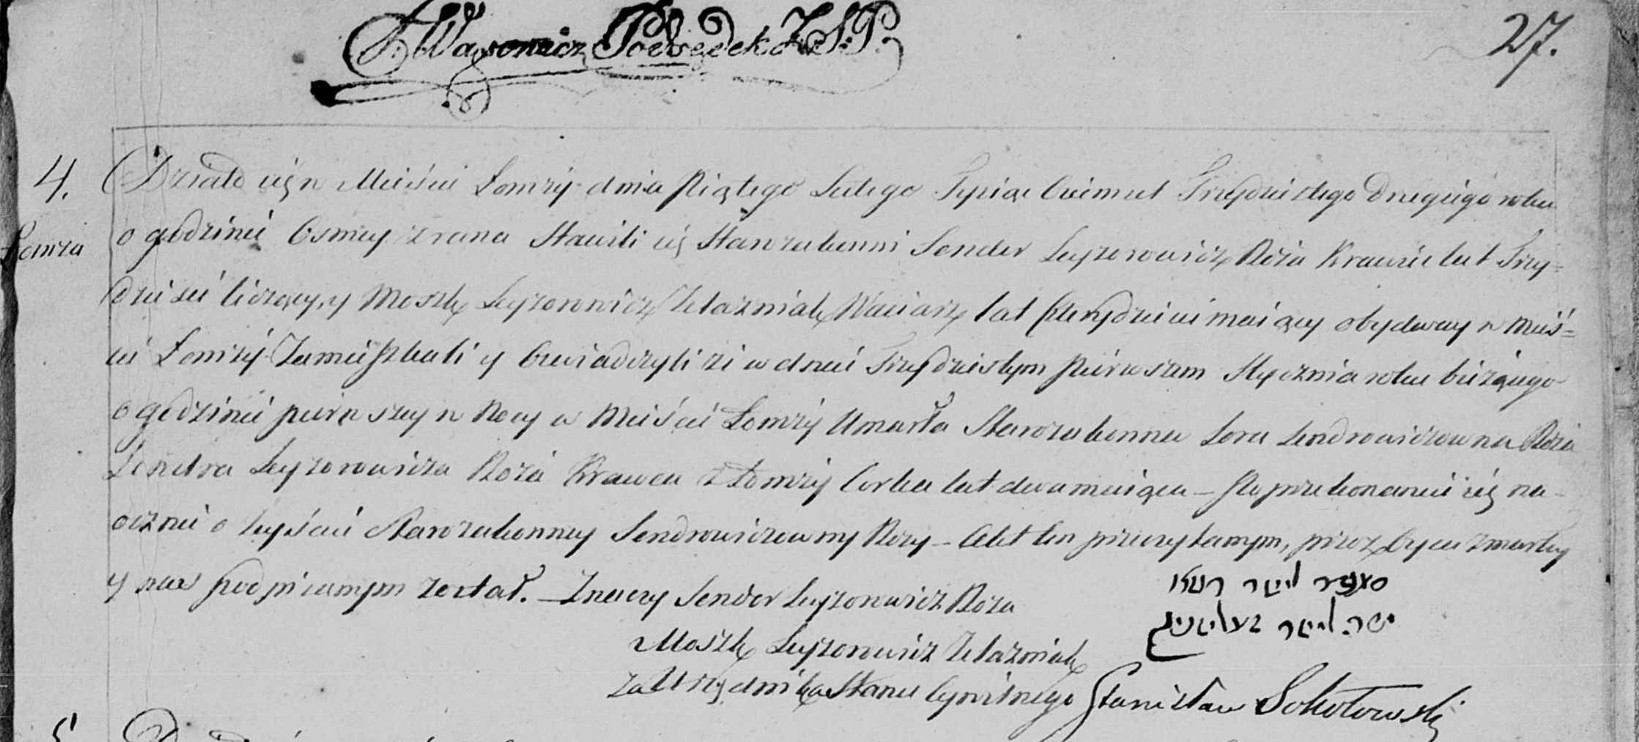 F. Wąsowicz Podsędek Z.S.P.
27.
4.
Łomza
Działo się w Mieście Łomży dnia Piątego Lutego Tysiąc Osimset Trzydziestego Drugiego roku
o godzinie Osmey z rana Stawili się Starozakonni Sender Leyzorowicz Róża Krawiec lat Trzy=
dzieści liczący, y Moszk Leyzorowicz Zelazniak Waciarz lat Czterydzieści maiący obydwaj w Mieś=
cie Łomży Zamieszkali y Oswiadczyli że w dniu Trzydziestym Pierwszem Stycznia roku bieżącego
o godzinie pierwszey w Nocy w Mieście Łomży Umarła Starozakonna Sora Sendrowiczowna Róża
Sendra Leyzorowicza Róża Krawca z Łomży Corka lat dwa maiąca – Po przekonaniu się na=
ocznie o zejściu Starozakonney Sendrowiczowny Rozy – Akt ten przeczytanym, przez
y nas podpisanym został. – Znaczy Sender Leyzorowicz Roza
Moszk Leyzorowicz Zelazniak
Za Urzędnika Stanu Cywilnego Stanisław Sokołowski
5